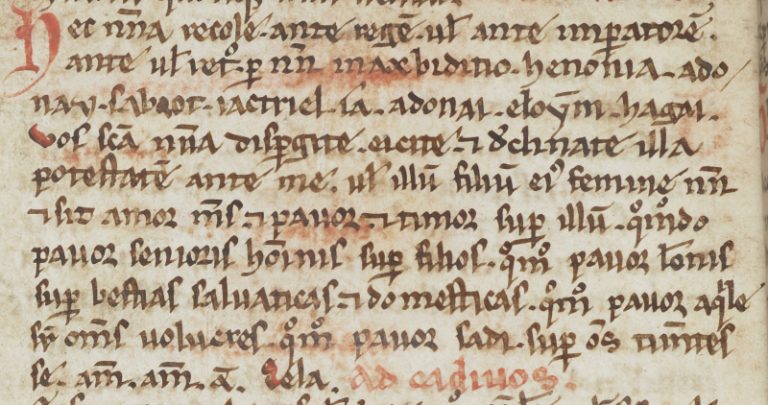 Hec nn̄a recole. ante regē. ul̄ ante imp̄atorē.
ante ul̄ ret̉. p̱ nn̄ maxbiditio. henonia. ado
nay. sabaot. iactriel. ia. adonai. eloym. hagai.
Vos scā nn̄a disp̱gite. eicite. ⁊ d̓clinate illa
potestatē ante me. ul̄ illū filiū ei᷒ femine nn̄
⁊ sit amor m̄s ⁊ pauor. ⁊ timor sup̱ illū. qͦmͦdo
pauor senioris hōinis sup̱ filios. qͦmͦ pauor lōnis
sup̱ bestias saluaticas ⁊ domesticas. qͦmͦ pauor aq̓le
sup̱ om̄s uolucres. qͦmͦ pauor sadi. sup̱ ōs tim̄tes
se. am̄. am̄. ā. Sela. ad caduos.